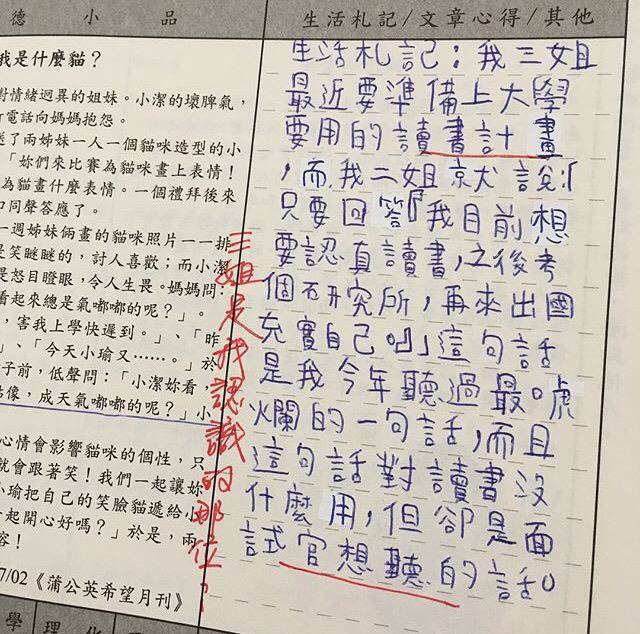 德小品
我是什麼貓？
對情緒迥異的姐妹。小潔的壞脾氣，
打電話向媽媽抱怨。
送了兩姊妹一人一個貓咪造型的小
「妳們來比賽為貓咪畫上表情！
為貓畫什麼表情。一個禮拜後來
口同聲答應了。
一週姊妹倆畫的貓咪照片一一排
是笑瞇瞇的，討人喜歡；而小潔
是怒目瞪眼，令人生畏。媽媽問：
看起來總是氣嘟嘟的呢？」。
，害我上學快遲到。」、「昨
」、「今天小瑜又……。」於
子前，低聲問：「小潔妳看，
像，成天氣嘟嘟的呢？」小
心情會影響貓咪的個性，只
就會跟著笑！我們一起讓妳
小瑜把自己的笑臉貓遞給小
一起開心好嗎？」於是，兩
容！
7/02《蒲公英希望月刊》
生活札記/文章心得/其他
生活札記：我三姐
最近要準備上大學
要用的讀書計畫
，而我二姐就說
只要回答「我目前想
要認真讀書，之後考
個研究所，再來出國
充實自己吧」這句話
是我今年聽過最唬
爛的一句話，而且
這句話對讀書沒
什麼用，但卻是面
試官想聽的話。
三姐是我認識的那位？
學
理化